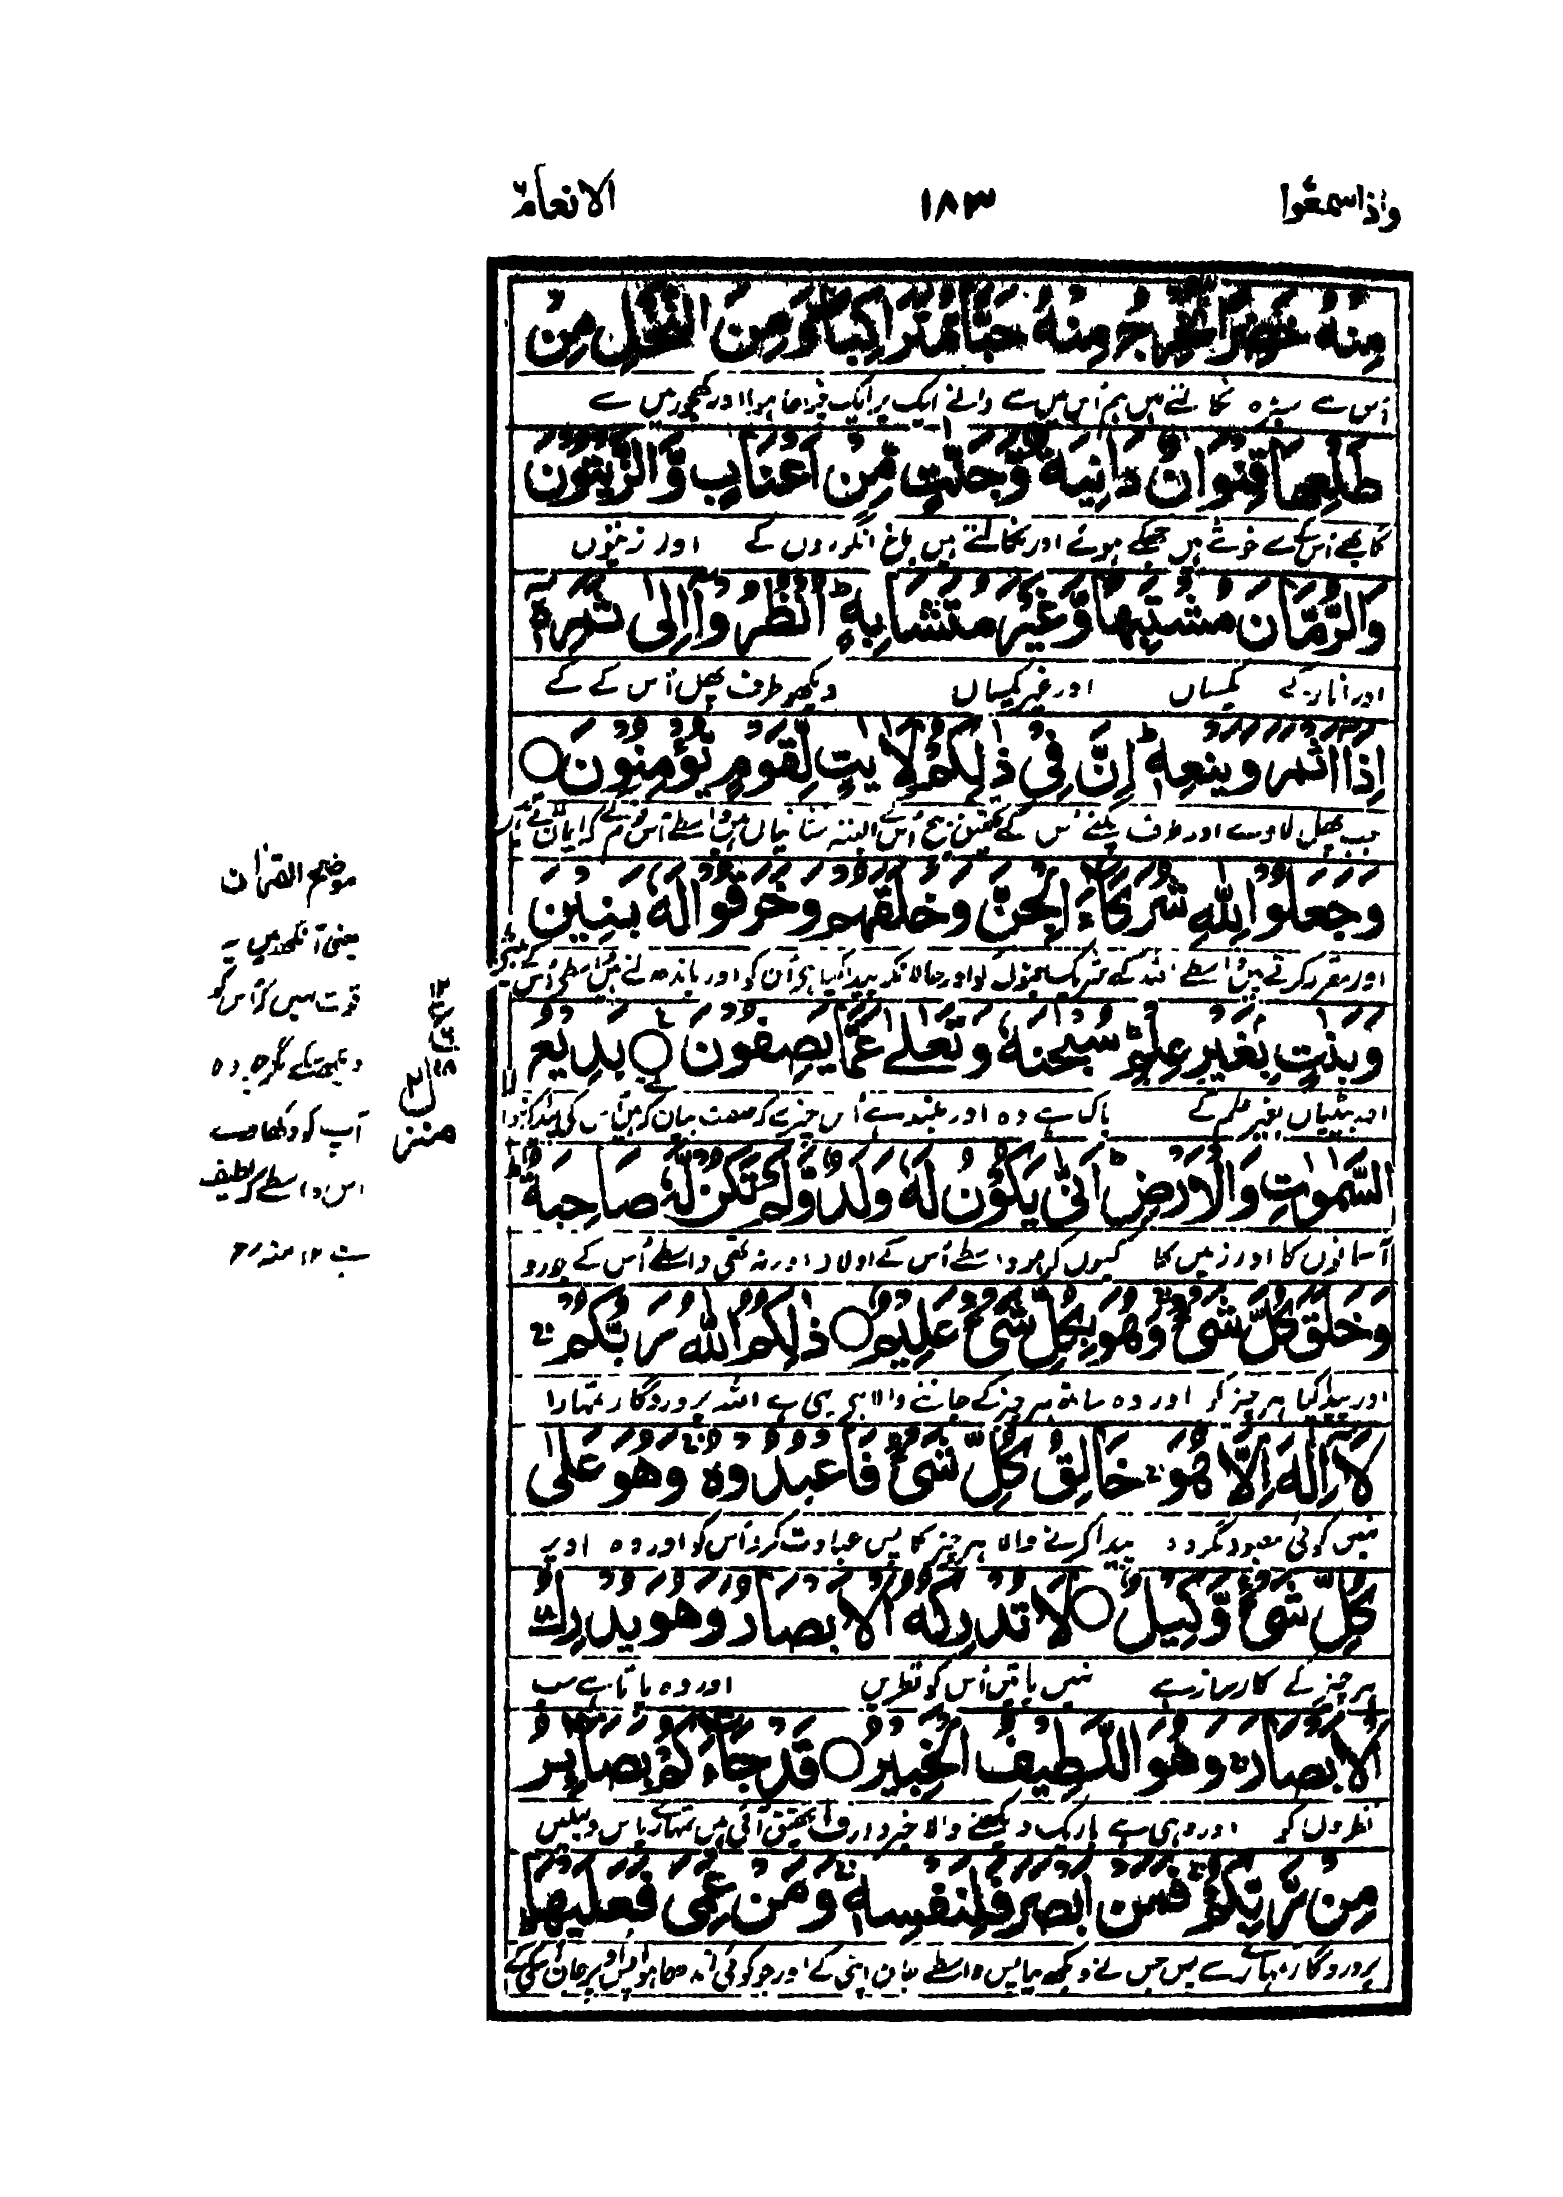 واذاسمعوا
١٨٣
الانعام ٦
مِنْهُ خَضِرًا نُّخْرِجُ مِنْهُ حَبًّا مُّتَرَاكِبًا وَمِنَ النَّخْلِ مِنْ
اُس سے سبزہ نکالتے ہیں ہم اُس میں سے دانے ایک پر ایک چڑھا ہوا اور کھجور میں سے
طَلْعِهَا قِنْوَانٌ دَانِيَةٌ وَّجَنّٰتٍ مِّنْ اَعْنَابٍ وَّالزَّيْتُوْنَ
گابھے اُس کے سے خوشے ہیں جھکے ہوئے اور نکالتے ہیں باغ انگوروں کے اور زیتون
وَالرُّمَّانَ مُشْتَبِهًا وَّغَيْرَ مُتَشَابِهٍ ؕ اُنْظُرُوْا اِلٰى ثَمَرِهٖ
اور انار کے یکساں اور غیر یکساں دیکھو طرف پھل اُس کے کے
اِذَا اَثْمَرَ وَيَنْعِهٖ ؕ اِنَّ فِيْ ذٰلِكُمْ لَاٰيٰتٍ لِّقَوْمٍ يُّؤْمِنُوْنَ ○
جب پھل لاوے اور طرف پکنے اُس کے تحقیق بیچ اُس البتہ نشانیاں ہیں واسطے اُس قوم کے کہ ایمان لاتے ہیں
وَجَعَلُوْا لِلّٰهِ شُرَكَآءَ الْجِنَّ وَخَلَقَهُمْ وَخَرَقُوْا لَهٗ بَنِيْنَ
اور مقرر کرتے ہیں واسطے اللہ کے شریک جنوں کو اور حالانکہ پیدا کیا ہی اُن کو اور باندھ لئے ہیں واسطے اُس کے بیٹے
وَبَنٰتٍ بِغَيْرِ عِلْمٍ ؕ سُبْحٰنَهٗ وَتَعٰلٰى عَمَّا يَصِفُوْنَ ○ بَدِيْعُ
اور بیٹیاں بغیر علم کے پاک ہے وہ اور بلند ہے اُس چیز سے کہ صفت بیان کرتے ہیں
السَّمٰوٰتِ وَالْاَرْضِ ؕ اَنّٰى يَكُوْنُ لَهٗ وَلَدٌ وَّلَمْ تَكُنْ لَّهٗ صَاحِبَةٌ ؕ
آسمانوں کا اور زمین کا کیوں کر ہو واسطے اُس کے اولاد اور نہ تھی واسطے اُس کے جورو
وَخَلَقَ كُلَّ شَيْءٍ وَهُوَ بِكُلِّ شَيْءٍ عَلِيْمٌ ○ ذٰلِكُمُ اللّٰهُ رَبُّكُمْ
اور پیدا کیا ہر چیز کو اور وہ ساتھ ہر چیز کے جاننے والا ہے یہی ہے اللہ پروردگار تمہارا
لَا اِلٰهَ اِلَّا هُوَ خَالِقُ كُلِّ شَيْءٍ فَاعْبُدُوْهُ وَهُوَ عَلٰى
نہیں کوئی معبود مگر وہ پیدا کرنے والا ہر چیز کا پس عبادت کرو اُس کو اور وہ اوپر
كُلِّ شَيْءٍ وَّكِيْلٌ ○ لَا تُدْرِكُهُ الْاَبْصَارُ وَهُوَ يُدْرِكُ
ہر چیز کے کارساز ہے نہیں پاتیں اُس کو نظریں اور وہ پاتا ہے سب
الْاَبْصَارَ وَهُوَ اللَّطِيْفُ الْخَبِيْرُ ○ قَدْ جَآءَكُمْ بَصَآئِرُ
نظروں کو اور وہی ہے باریک دیکھنے والا خبردار تحقیق آئی ہیں تمہارے پاس دلیلیں
مِنْ رَّبِّكُمْ فَمَنْ اَبْصَرَ فَلِنَفْسِهٖ وَمَنْ عَمِيَ فَعَلَيْهَا ؕ
پروردگار تمہارے سے پس جس نے دیکھ لیا پس واسطے جان اپنی کے اور جو کوئی اندھا ہوا پس اوپر جان اُسکی کے
موضح القرآن
یعنی آنکھ میں یہ
قوت نہیں کہ اُس کو
دیکھ لے مگر جو وہ
آپ کو دکھا
اس واسطے کہ لطیف
ہے ١٢ منہ رح
١٢
ع
١٨
منزل ٢